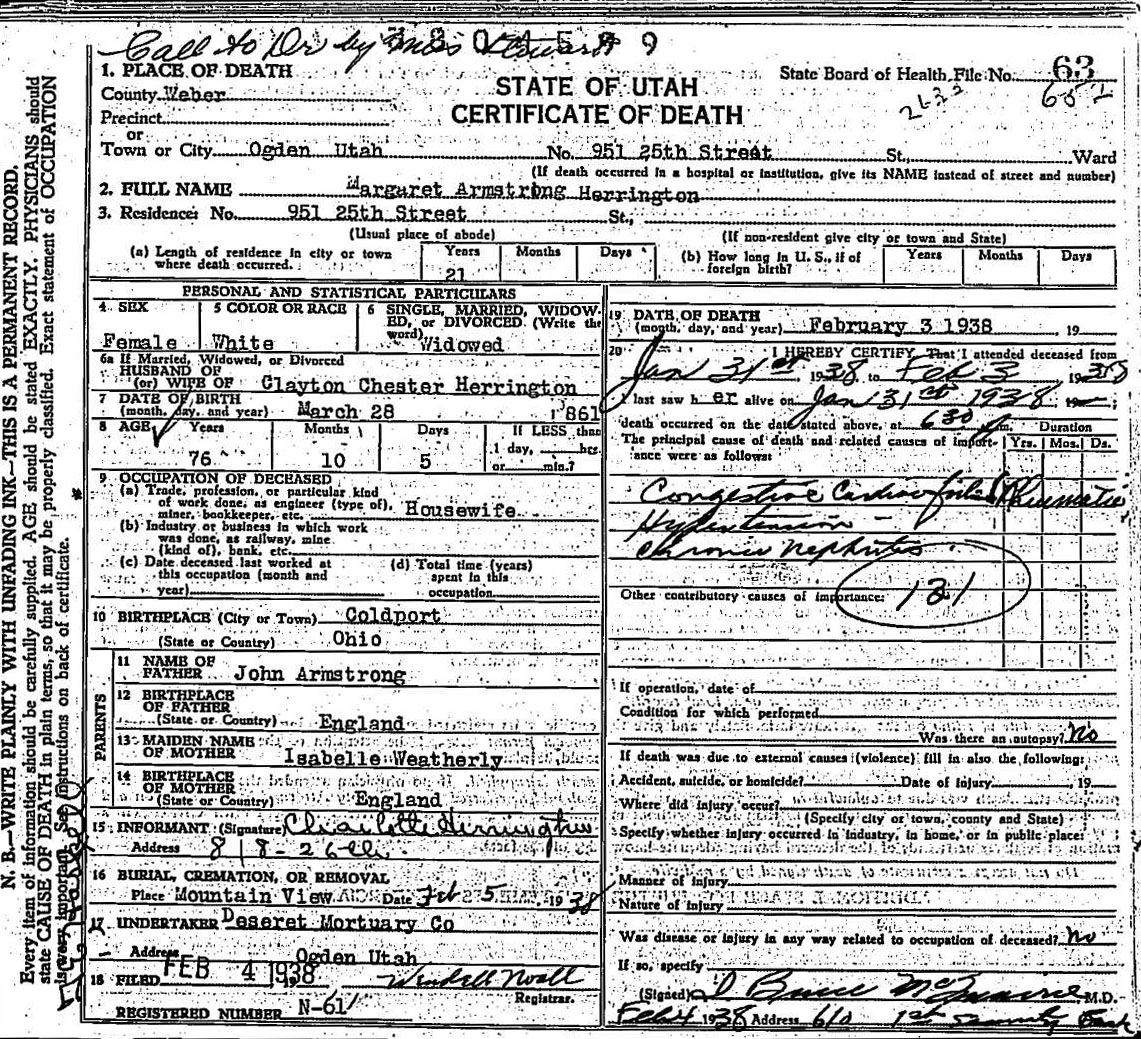 Call to Dr by Miss
1. PLACE OF DEATH
County Weber
Precinct
or
Town or City Ogden Utah No. 951 25th Street St., Ward
STATE OF UTAH
CERTIFICATE OF DEATH
State Board of Health File No. 63
2633
(If death occurred in a hospital or institution, give its NAME instead of street and number)
2. FULL NAME Margaret Armstrong Herrington
3. Residence: No. 951 25th Street St.,
(Usual place of abode) (If non-resident give city or town and State)
(a) Length of residence in city or town where death occurred. Years 21 Months Days
(b) How long in U. S., if of foreign birth? Years Months Days
PERSONAL AND STATISTICAL PARTICULARS
4 SEX Female
5 COLOR OR RACE White
6 SINGLE, MARRIED, WIDOWED, or DIVORCED (Write the word) Widowed
6a If Married, Widowed, or Divorced
HUSBAND OF
(or) WIFE OF Clayton Chester Herrington
7 DATE OF BIRTH
(month, day, and year) March 28 1861
8 AGE Years 76 Months 10 Days 5
If LESS than
1 day, hrs.
or min.?
9 OCCUPATION OF DECEASED
(a) Trade, profession, or particular kind
of work done, as engineer (type of),
miner, bookkeeper, etc. Housewife
(b) Industry or business in which work
was done, as railway, mine
(kind of), bank, etc.
(c) Date deceased last worked at
this occupation (month and
year)
(d) Total time (years)
spent in this
occupation
10 BIRTHPLACE (City or Town) Coldport
(State or Country) Ohio
PARENTS
11 NAME OF
FATHER John Armstrong
12 BIRTHPLACE
OF FATHER
(State or Country) England
13 MAIDEN NAME
OF MOTHER Isabelle Weatherly
14 BIRTHPLACE
OF MOTHER
(State or Country) England
15 INFORMANT (Signature) Charlotte Herrington
Address 818-26th
16 BURIAL, CREMATION, OR REMOVAL
Place Mountain View Date Feb 5 1938
17 UNDERTAKER Deseret Mortuary Co
Address Ogden Utah
18 FILED FEB 4 1938 Wendell Noall
Registrar.
REGISTERED NUMBER N-61
19 DATE OF DEATH
(month, day, and year) February 3 1938 19
20 I HEREBY CERTIFY, That I attended deceased from
Jan 31st 1938 to Feb 3 1938
I last saw her alive on Jan 31st 1938
death occurred on the date stated above, at 630 m. Duration
The principal cause of death and related causes of importance were as follows: Yrs. Mos. Ds.
Congestive Cardiac (Rheumatic
Hypertension -
Chronic Nephritis
Other contributory causes of importance: 131
If operation, date of
Condition for which performed
Was there an autopsy? No
If death was due to external causes (violence) fill in also the following:
Accident, suicide, or homicide? Date of Injury , 19
Where did injury occur?
(Specify city or town, county and State)
Specify whether injury occurred in industry, in home, or in public place:
Manner of injury
Nature of injury
Was disease or injury in any way related to occupation of deceased? No
If so, specify
(Signed) Bruce M.D.
Feb 4 1938 Address 610 1st Security Bank
N. B.—WRITE PLAINLY WITH UNFADING INK—THIS IS A PERMANENT RECORD.
Every item of information should be carefully supplied. AGE should be stated EXACTLY. PHYSICIANS should
state CAUSE OF DEATH in plain terms, so that it may be properly classified. Exact statement of OCCUPATION
is very important. See instructions on back of certificate.